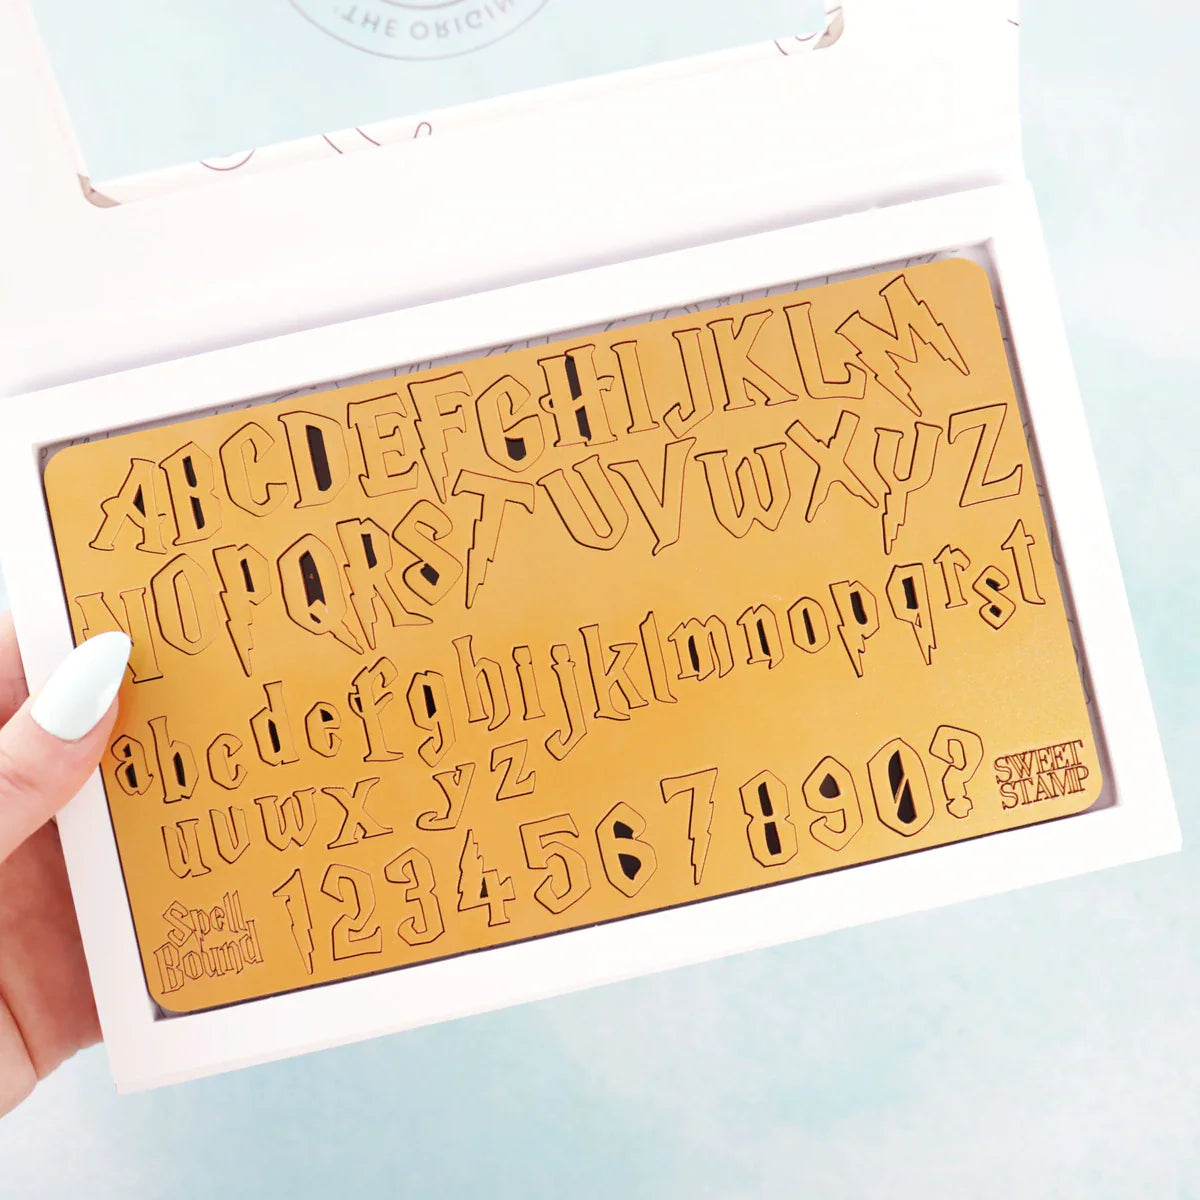 THE ORIGIN
ABCDEFGHIJKLM
NOPQRSTUVWXYZ
abcdefghijklmnopqrst
uvwxyz
1234567890?
SWEET
STAMP
Spell
Bound